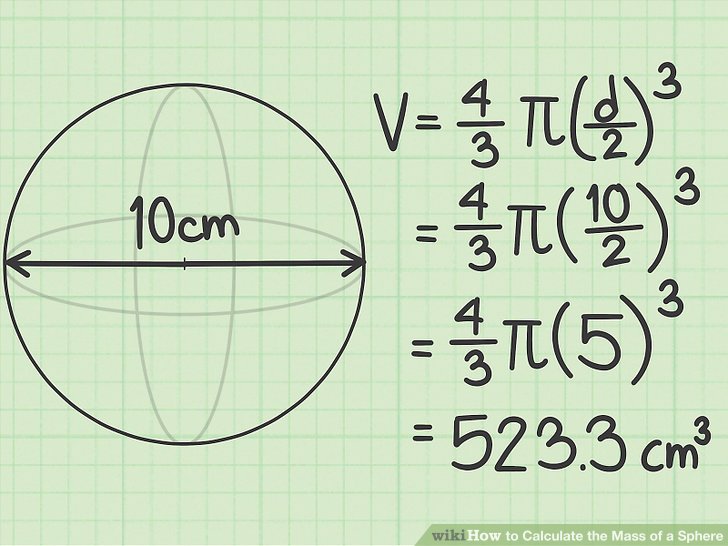 10cm
V = 4/3 π(d/2)³
= 4/3 π(10/2)³
= 4/3 π(5)³
= 523.3 cm³
wikiHow to Calculate the Mass of a Sphere